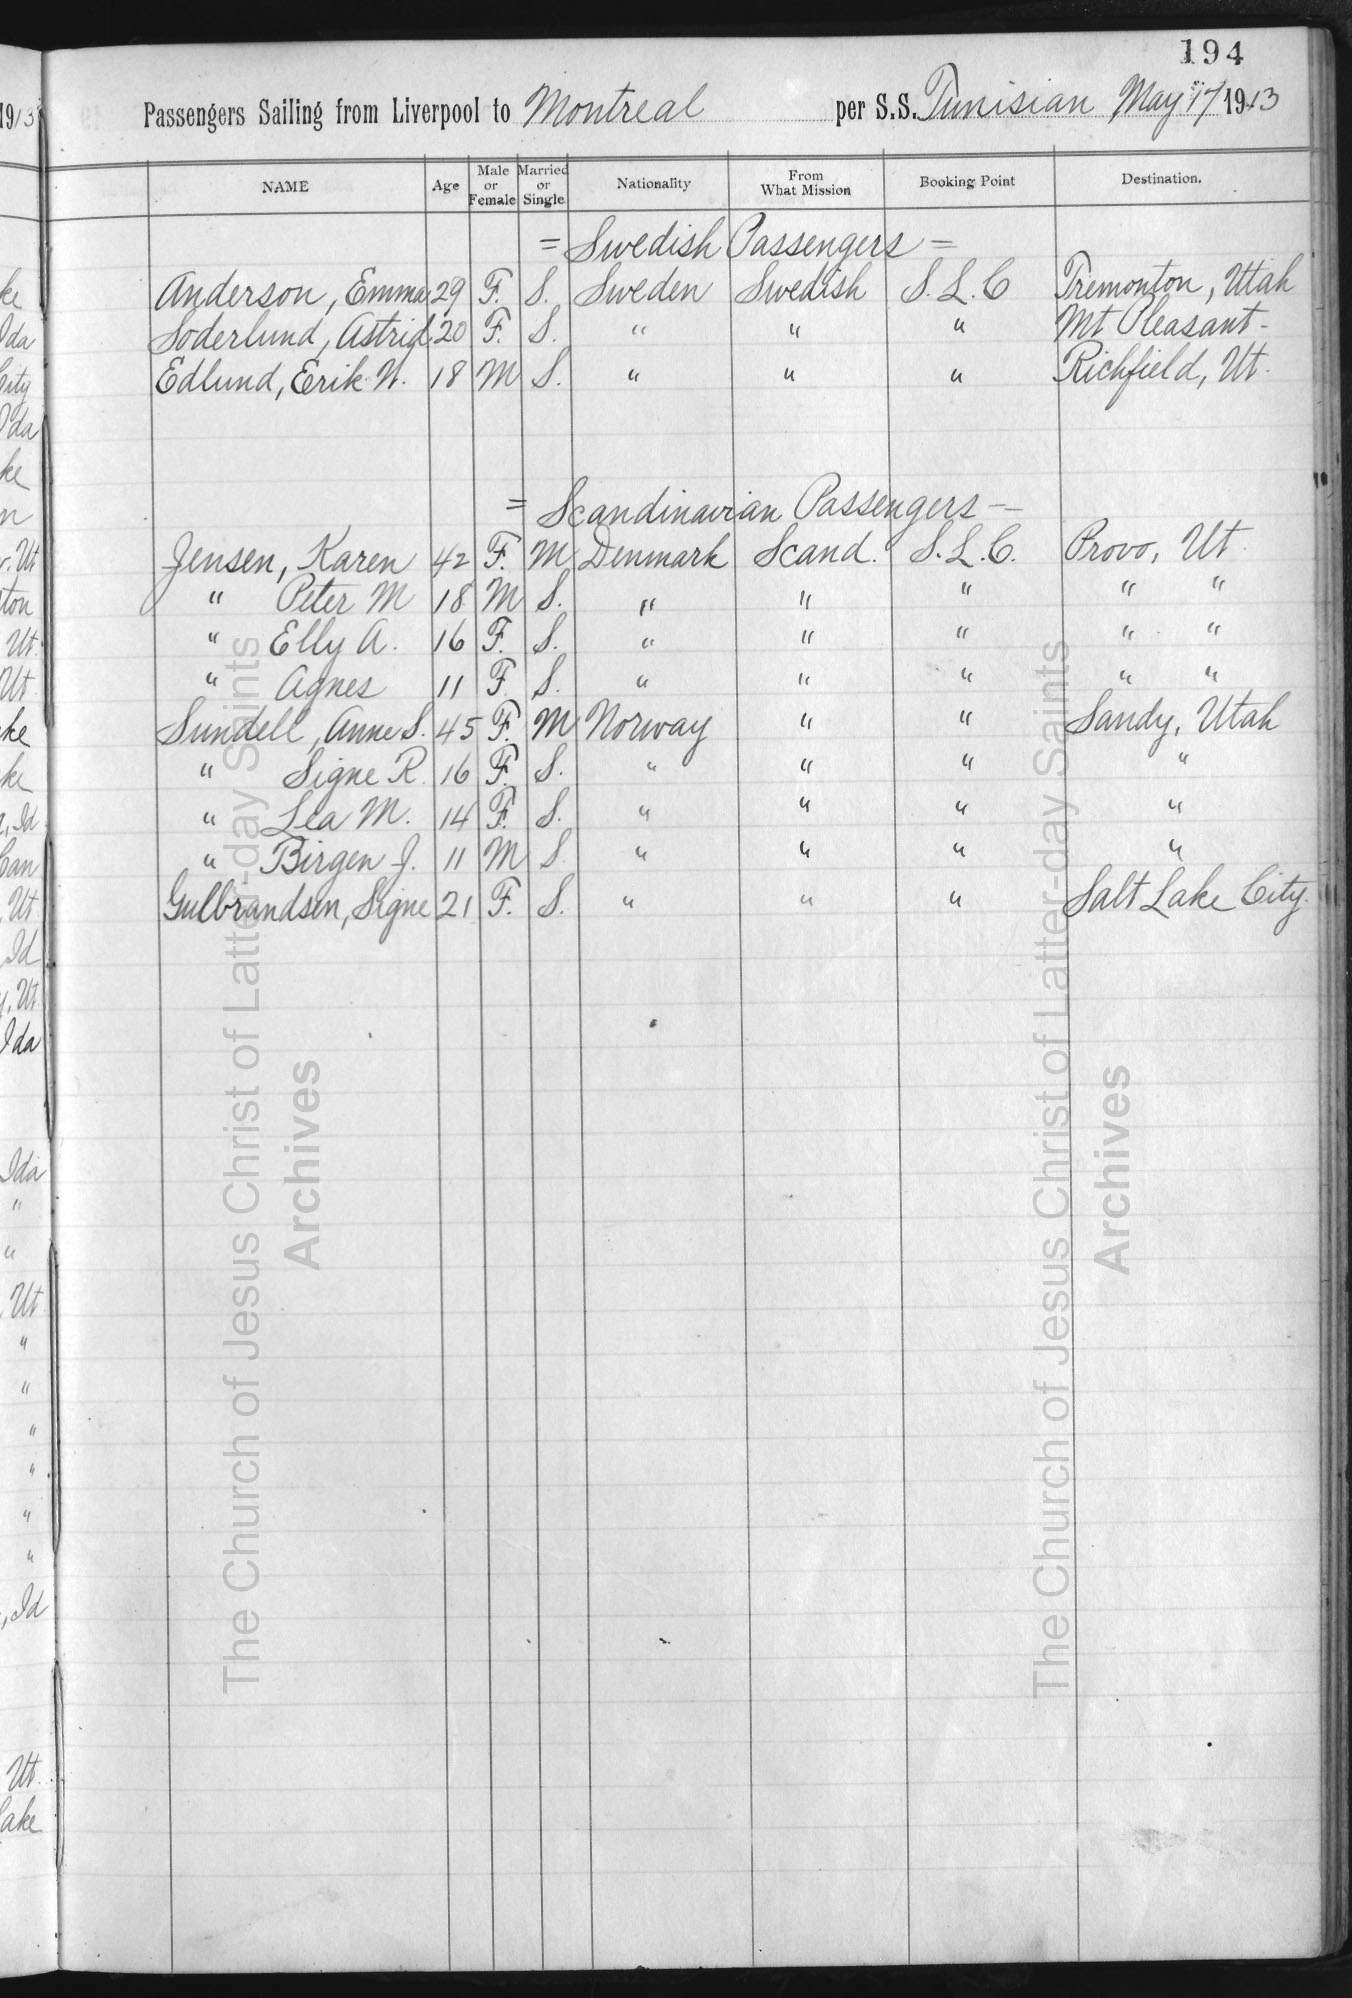 194
Passengers Sailing from Liverpool to Montreal per S.S. Tunisian May 17 1913
NAME Age Male or Female Married or Single Nationality From What Mission Booking Point Destination.
= Swedish Passengers =
Anderson, Emma 29 F. S. Sweden Swedish S. L. C Tremonton, Utah
Soderlund, Astrid 20 F. S. " " " Mt Pleasant -
Edlund, Erik W. 18 M S. " " " Richfield, Ut.
= Scandinavian Passengers =
Jensen, Karen 42 F. M Denmark Scand. S. L. C. Provo, Ut.
" Peter M 18 M S. " " " " "
" Elly A. 16 F. S. " " " " "
" Agnes 11 F S. " " " " "
Sundell, Anne S. 45 F. M Norway " " Sandy, Utah
" Signe R. 16 F. S. " " " "
" Lea M. 14 F. S. " " " "
" Birgen J. 11 M S " " " "
Gulbrandsen, Signe 21 F. S. " " " Salt Lake City.
The Church of Jesus Christ of Latter-day Saints
Archives
The Church of Jesus Christ of Latter-day Saints
Archives